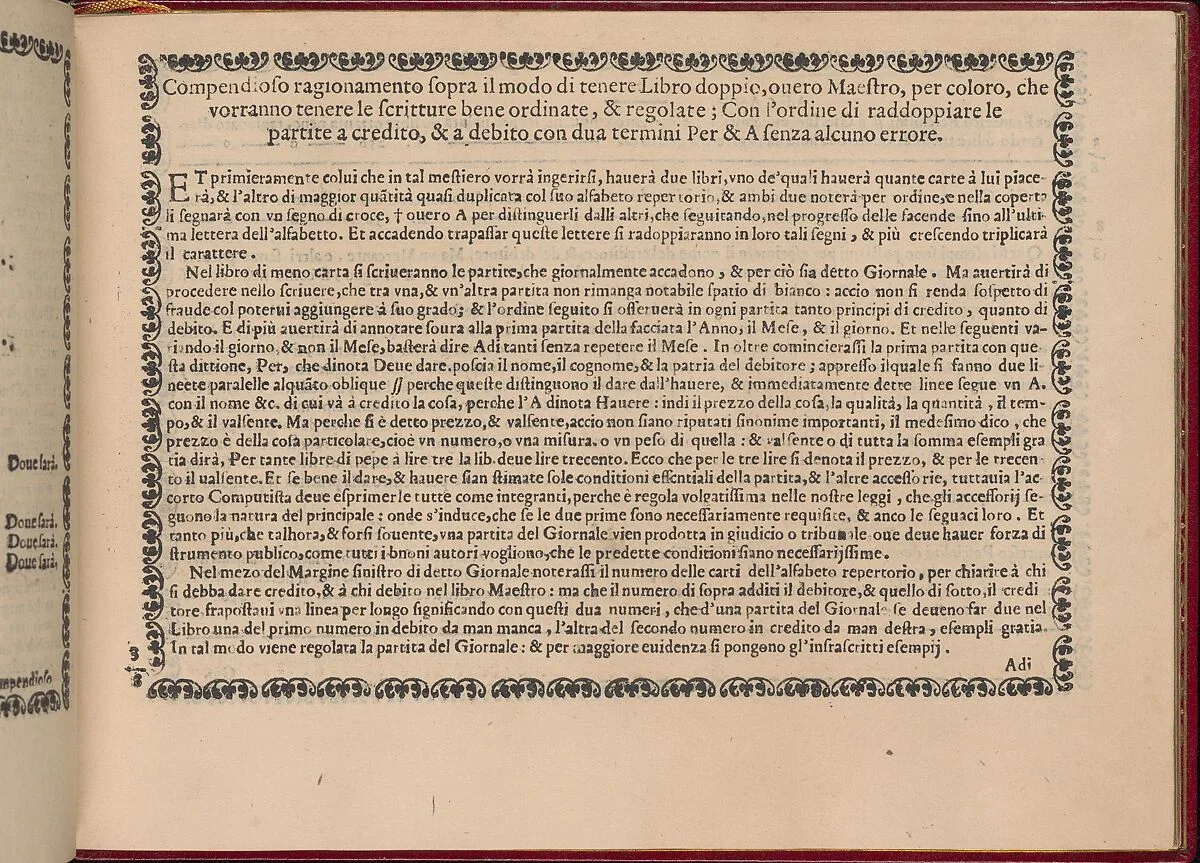 Doue sarà.
Doue sarà.
Doue sarà.
Doue sarà.
mpendioſo
Compendioſo ragionamento ſopra il modo di tenere Libro doppio, ouero Maeſtro, per coloro, che
vorranno tenere le ſcritture bene ordinate, & regolate; Con l'ordine di raddoppiare le
partite a credito, & a debito con dua termini Per & A ſenza alcuno errore.
ET primieramente colui che in tal meſtiero vorrà ingerirſi, hauerà due libri, vno de'quali hauerà quante carte à lui piace-
rà, & l'altro di maggior quãtità quaſi duplicata col ſuo alfabeto repertorio, & ambi due noterà per ordine, e nella coperta
li ſegnarà con vn ſegno di croce, † ouero A per diſtinguerli dalli altri, che ſeguitando, nel progreſſo delle facende ſino all'ulti-
ma lettera dell'alfabetto. Et accadendo trapaſſar queſte lettere ſi radoppiaranno in loro tali ſegni, & più creſcendo triplicarà
il carattere.
Nel libro di meno carta ſi ſcriueranno le partite, che giornalmente accadono, & per ciò ſia detto Giornale. Ma auertirà di
procedere nello ſcriuere, che tra vna, & vn'altra partita non rimanga notabile ſpatio di bianco: accio non ſi renda ſoſpetto di
fraude col poterui aggiungere à ſuo grado; & l'ordine ſeguito ſi oſſeruerà in ogni partita tanto principi di credito, quanto di
debito. E di più auertirà di annotare ſoura alla prima partita della facciata l'Anno, il Meſe, & il giorno. Et nelle ſeguenti va-
riando il giorno, & non il Meſe, baſterà dire Adi tanti ſenza repetere il Meſe. In oltre comincieraſſi la prima partita con que-
ſta dittione, Per, che dinota Deue dare. poſcia il nome, il cognome, & la patria del debitore; appreſſo ilquale ſi fanno due li-
neete paralelle alquãto oblique // perche queſte diſtinguono il dare dall'hauere, & immediatamente dette linee ſegue vn A.
con il nome &c. di cui và à credito la coſa, perche l'A dinota Hauere: indi il prezzo della coſa, la qualità, la quantità, il tem-
po, & il valſente. Ma perche ſi è detto prezzo, & valſente, accio non ſiano riputati ſinonime importanti, il medeſimo dico, che
prezzo è della coſa particolare, cioè vn numero, o vna miſura. o vn peſo di quella: & valſente o di tutta la ſomma eſempli gra
tia dirà, Per tante libre di pepe à lire tre la lib. deue lire trecento. Ecco che per le tre lire ſi denota il prezzo, & per le trecen-
to il ualſente. Et ſe bene il dare, & hauere ſian ſtimate ſole conditioni eſſentiali della partita, & l'altre acceſſorie, tuttauia l'ac-
corto Computiſta deue eſprimerle tutte come integranti, perche è regola volgatiſſima nelle noſtre leggi, che gli acceſſorij ſe-
guono la natura del principale: onde s'induce, che ſe le due prime ſono neceſſariamente requiſite, & anco le ſeguaci loro. Et
tanto più, che talhora, & forſi ſouente, vna partita del Giornale vien prodotta in giudicio o tribunale oue deue hauer forza di
ſtrumento publico, come tutti i buoni autori vogliono, che le predette conditioni ſiano neceſſarijſſime.
Nel mezo del Margine ſiniſtro di detto Giornale noteraſſi il numero delle carti dell'alfabeto repertorio, per chiarire à chi
ſi debba dare credito, & à chi debito nel libro Maeſtro: ma che il numero di ſopra additi il debitore, & quello di ſotto, il credi
tore frapoſtaui vna linea per longo ſignificando con queſti dua numeri, che d'una partita del Giornale ſe deueno far due nel
Libro una del primo numero in debito da man manca, l'altra del ſecondo numero in credito da man deſtra, eſempli gratia.
In tal modo viene regolata la partita del Giornale: & per maggiore euidenza ſi pongono gl'infraſcritti eſempij.
Adi